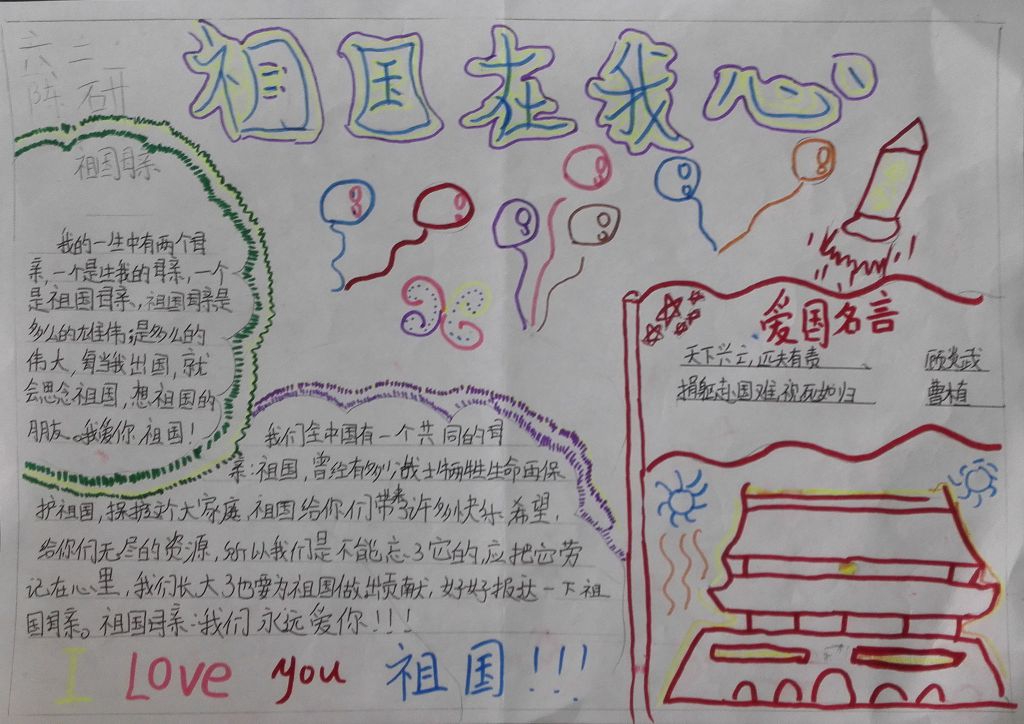 六二
陈研
祖国在我心
祖国母亲
我的一生中有两个母
亲,一个是生我的母亲,一个
是祖国母亲,祖国母亲是
多么的雄伟;是多么的
伟大,每当我出国,就
会思念祖国,想祖国的
朋友。我爱你祖国!
爱国名言
天下兴亡,匹夫有责 顾炎武
捐躯赴国难,视死如归 曹植
我们全中国有一个共同的母
亲:祖国,曾经有多少战士牺牲生命而保
护祖国,保护这个大家庭,祖国给你们带来了许多快乐希望,
给你们无尽的资源,所以我们是不能忘了它的,应把它劳
记在心里,我们长大了也要为祖国做出贡献,好好报达一下祖
国母亲。祖国母亲:我们永远爱你!!!
I Love you 祖国!!!